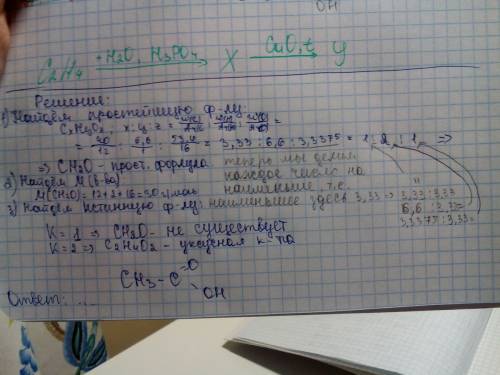 OH
C₂H₄ +H₂O, H₃PO₄ → X CuO, t → y
Решение:
1) Найдём простейшую ф-лу:
CₓHᵧO_z, x : y : z = =
= 12 : : 16 = 3,33 : 6,6 : 3,3375 = 1 : 2 : 1 ⇒
⇒ CH₂O - прост. формула
теперь мы делим
каждое число на
наименьшее, т.е.
2) Найдём M(в-ва)
M(CH₂O) = 12+2+16=30 г/моль
3) Найдём истинную ф-лу:
наименьшее здесь 3,33 ⇒ 3,33 : 3,33
6,6 : 3,33=
3,3375 : 3,33=
K = 1 ⇒ CH₂O - не существует
K = 2 ⇒ C₂H₄O₂ - уксусная к-та
CH₃ - C = O
OH
Ответ: ...